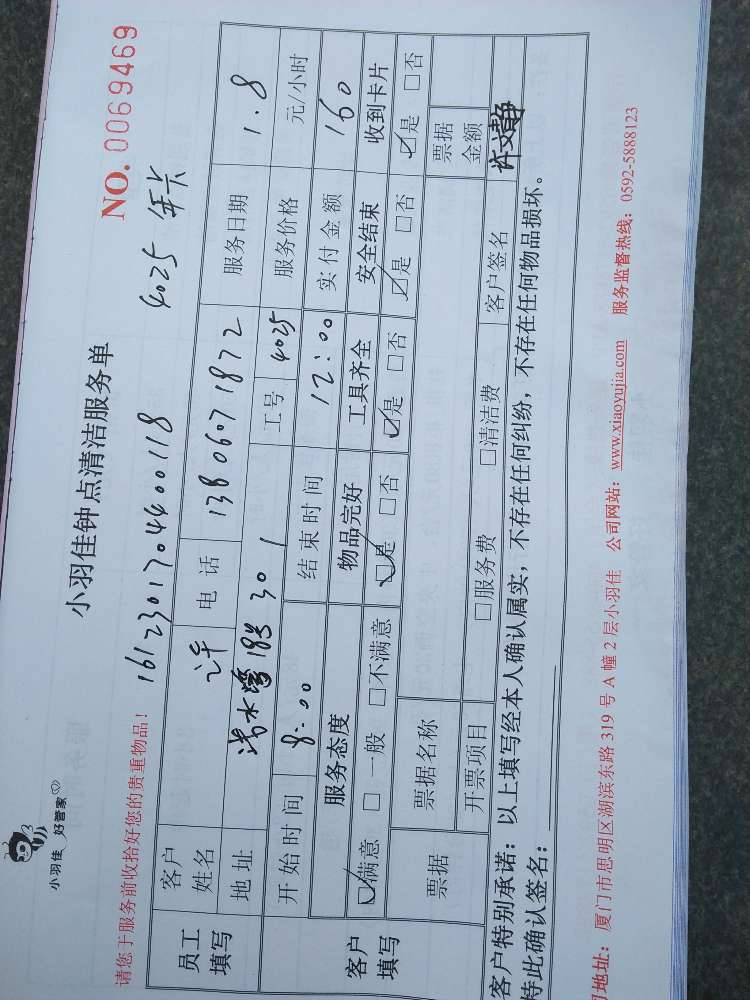 小羽佳 好管家
小羽佳钟点清洁服务单
NO. 0069469
请您于服务前收拾好您的贵重物品！ 1612301704400118 4025 年卡
员工填写 客户姓名 许 电话 13806071872 服务日期 1.8
地址 183 301 工号 4025 服务价格 元/小时
客户填写 开始时间 8:00 结束时间 12:00 实付金额 160
服务态度 物品完好 工具齐全 安全结束 收到卡片
☑满意 □一般 □不满意 ☑是 □否 ☑是 □否 ☑是 □否 ☑是 □否
票据 票据名称 票据金额
开票项目 □服务费 □清洁费 客户签名 许文静
客户特别承诺：以上填写经本人确认属实，不存在任何纠纷，不存在任何物品损坏。
特此确认签名：
地址：厦门市思明区湖滨东路 319 号 A 幢 2 层小羽佳 公司网站：www.xiaoyujia.com 服务监督热线：0592-5888123